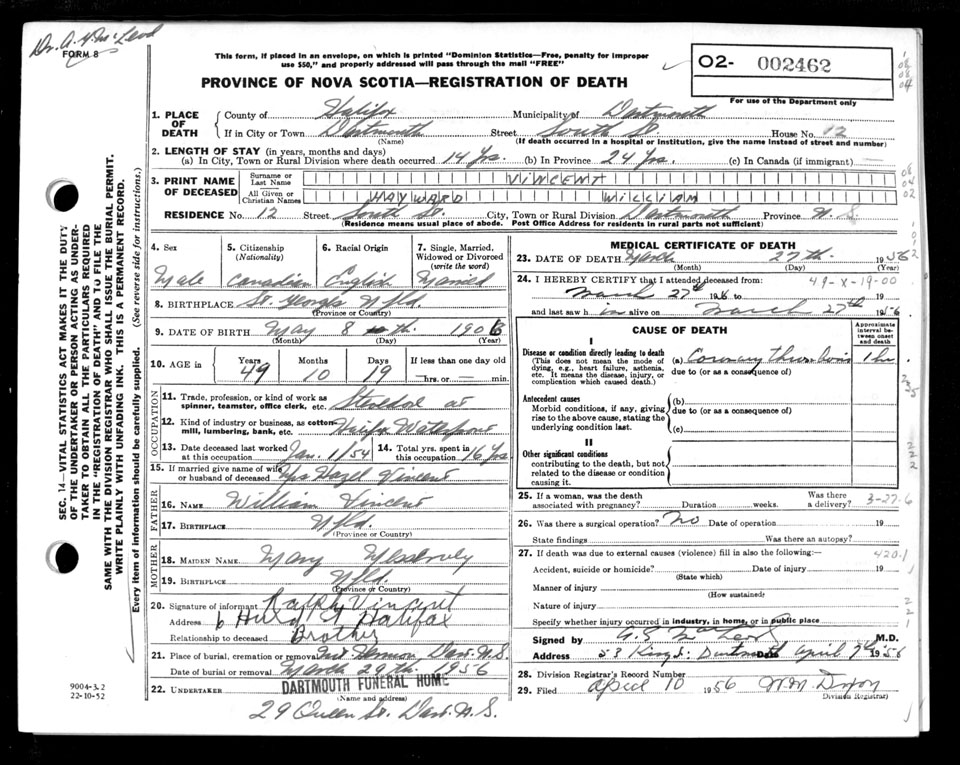 Dr. A. G. McLeod
FORM 8
This form, if placed in an envelope, on which is printed "Dominion Statistics—Free, penalty for improper
use $50," and properly addressed will pass through the mail "FREE"
PROVINCE OF NOVA SCOTIA—REGISTRATION OF DEATH
02- 002462
For use of the Department only
1. PLACE OF DEATH
County of Halifax Municipality of Dartmouth
If in City or Town Dartmouth Street South St. House No. 12
(Name) (If death occurred in a hospital or institution, give the name instead of street and number)
2. LENGTH OF STAY (in years, months and days)
(a) In City, Town or Rural Division where death occurred 14 Yrs. (b) In Province 24 Yrs. (c) In Canada (if immigrant) —
3. PRINT NAME OF DECEASED
Surname or Last Name VINCENT
All Given or Christian Names HAYWARD WILLIAM
RESIDENCE No. 12 Street South St. City, Town or Rural Division Dartmouth Province N.S.
(Residence means usual place of abode. Post Office Address for residents in rural parts not sufficient)
4. Sex
Male
5. Citizenship
(Nationality)
Canadian
6. Racial Origin
English
7. Single, Married, Widowed or Divorced
(write the word)
Married
8. BIRTHPLACE St. Georges Nfld
(Province or Country)
9. DATE OF BIRTH May 8 th. 1906
(Month) (Day) (Year)
10. AGE in
Years Months Days If less than one day old
49 10 19 —hrs. or — min.
OCCUPATION
11. Trade, profession, or kind of work as
spinner, teamster, office clerk, etc. Stevedore at
12. Kind of industry or business, as cotton-
mill, lumbering, bank, etc. Halifax Waterfront
13. Date deceased last worked
at this occupation Jan. 1/54
14. Total yrs. spent in
this occupation 16 Yrs.
15. If married give name of wife
or husband of deceased Mrs Hazel Vincent
FATHER
16. NAME William Vincent
17. BIRTHPLACE Nfld.
(Province or Country)
MOTHER
18. MAIDEN NAME Mary
19. BIRTHPLACE Nfld.
(Province or Country)
20. Signature of informant Ralph Vincent
Address 6 Halifax
Relationship to deceased Brother
21. Place of burial, cremation or removal Mt Hermon, Dart. N.S.
Date of burial or removal March 29th. 1956
22. UNDERTAKER DARTMOUTH FUNERAL HOME
(Name and address)
29 Queen St. Dart. N.S.
MEDICAL CERTIFICATE OF DEATH
23. DATE OF DEATH March 27th. 1956
(Month) (Day) (Year)
24. I HEREBY CERTIFY that I attended deceased from 49-X-19-00
March 27th 1956 to 19
and last saw h im alive on March 27th 1956
CAUSE OF DEATH
Approximate interval between onset and death
I
Disease or condition directly leading to death
(This does not mean the mode of
dying, e.g., heart failure, asthenia,
etc. It means the disease, injury, or
complication which caused death.)
(a) Coronary thrombosis 1 hr.
due to (or as a consequence of)
Antecedent causes
Morbid conditions, if any, giving
rise to the above cause, stating the
underlying condition last.
(b)
due to (or as a consequence of)
(c)
II
Other significant conditions
contributing to the death, but not
related to the disease or condition
causing it.
25. If a woman, was the death
associated with pregnancy? Duration weeks. Was there a delivery? 3-27-6
26. Was there a surgical operation? No Date of operation 19
State findings Was there an autopsy?
27. If death was due to external causes (violence) fill in also the following:— 420.1
Accident, suicide or homicide? Date of injury 19
(State which)
Manner of injury
(How sustained)
Nature of injury
Specify whether injury occurred in industry, in home, or in public place
Signed by A. G. MacLeod M.D.
Address 53 King St. Dartmouth Date April 3rd 1956
28. Division Registrar's Record Number
29. Filed April 10 1956 W.M. Dixon
Division Registrar
SEC. 14—VITAL STATISTICS ACT MAKES IT THE DUTY
OF THE UNDERTAKER OR PERSON ACTING AS UNDER-
TAKER TO OBTAIN ALL THE PARTICULARS REQUIRED
IN THE "REGISTRATION OF DEATH" AND TO FILE THE
SAME WITH THE DIVISION REGISTRAR WHO SHALL ISSUE THE BURIAL PERMIT.
WRITE PLAINLY WITH UNFADING INK. THIS IS A PERMANENT RECORD.
Every item of information should be carefully supplied. (See reverse side for instructions.)
9004-3.2
22-10-52